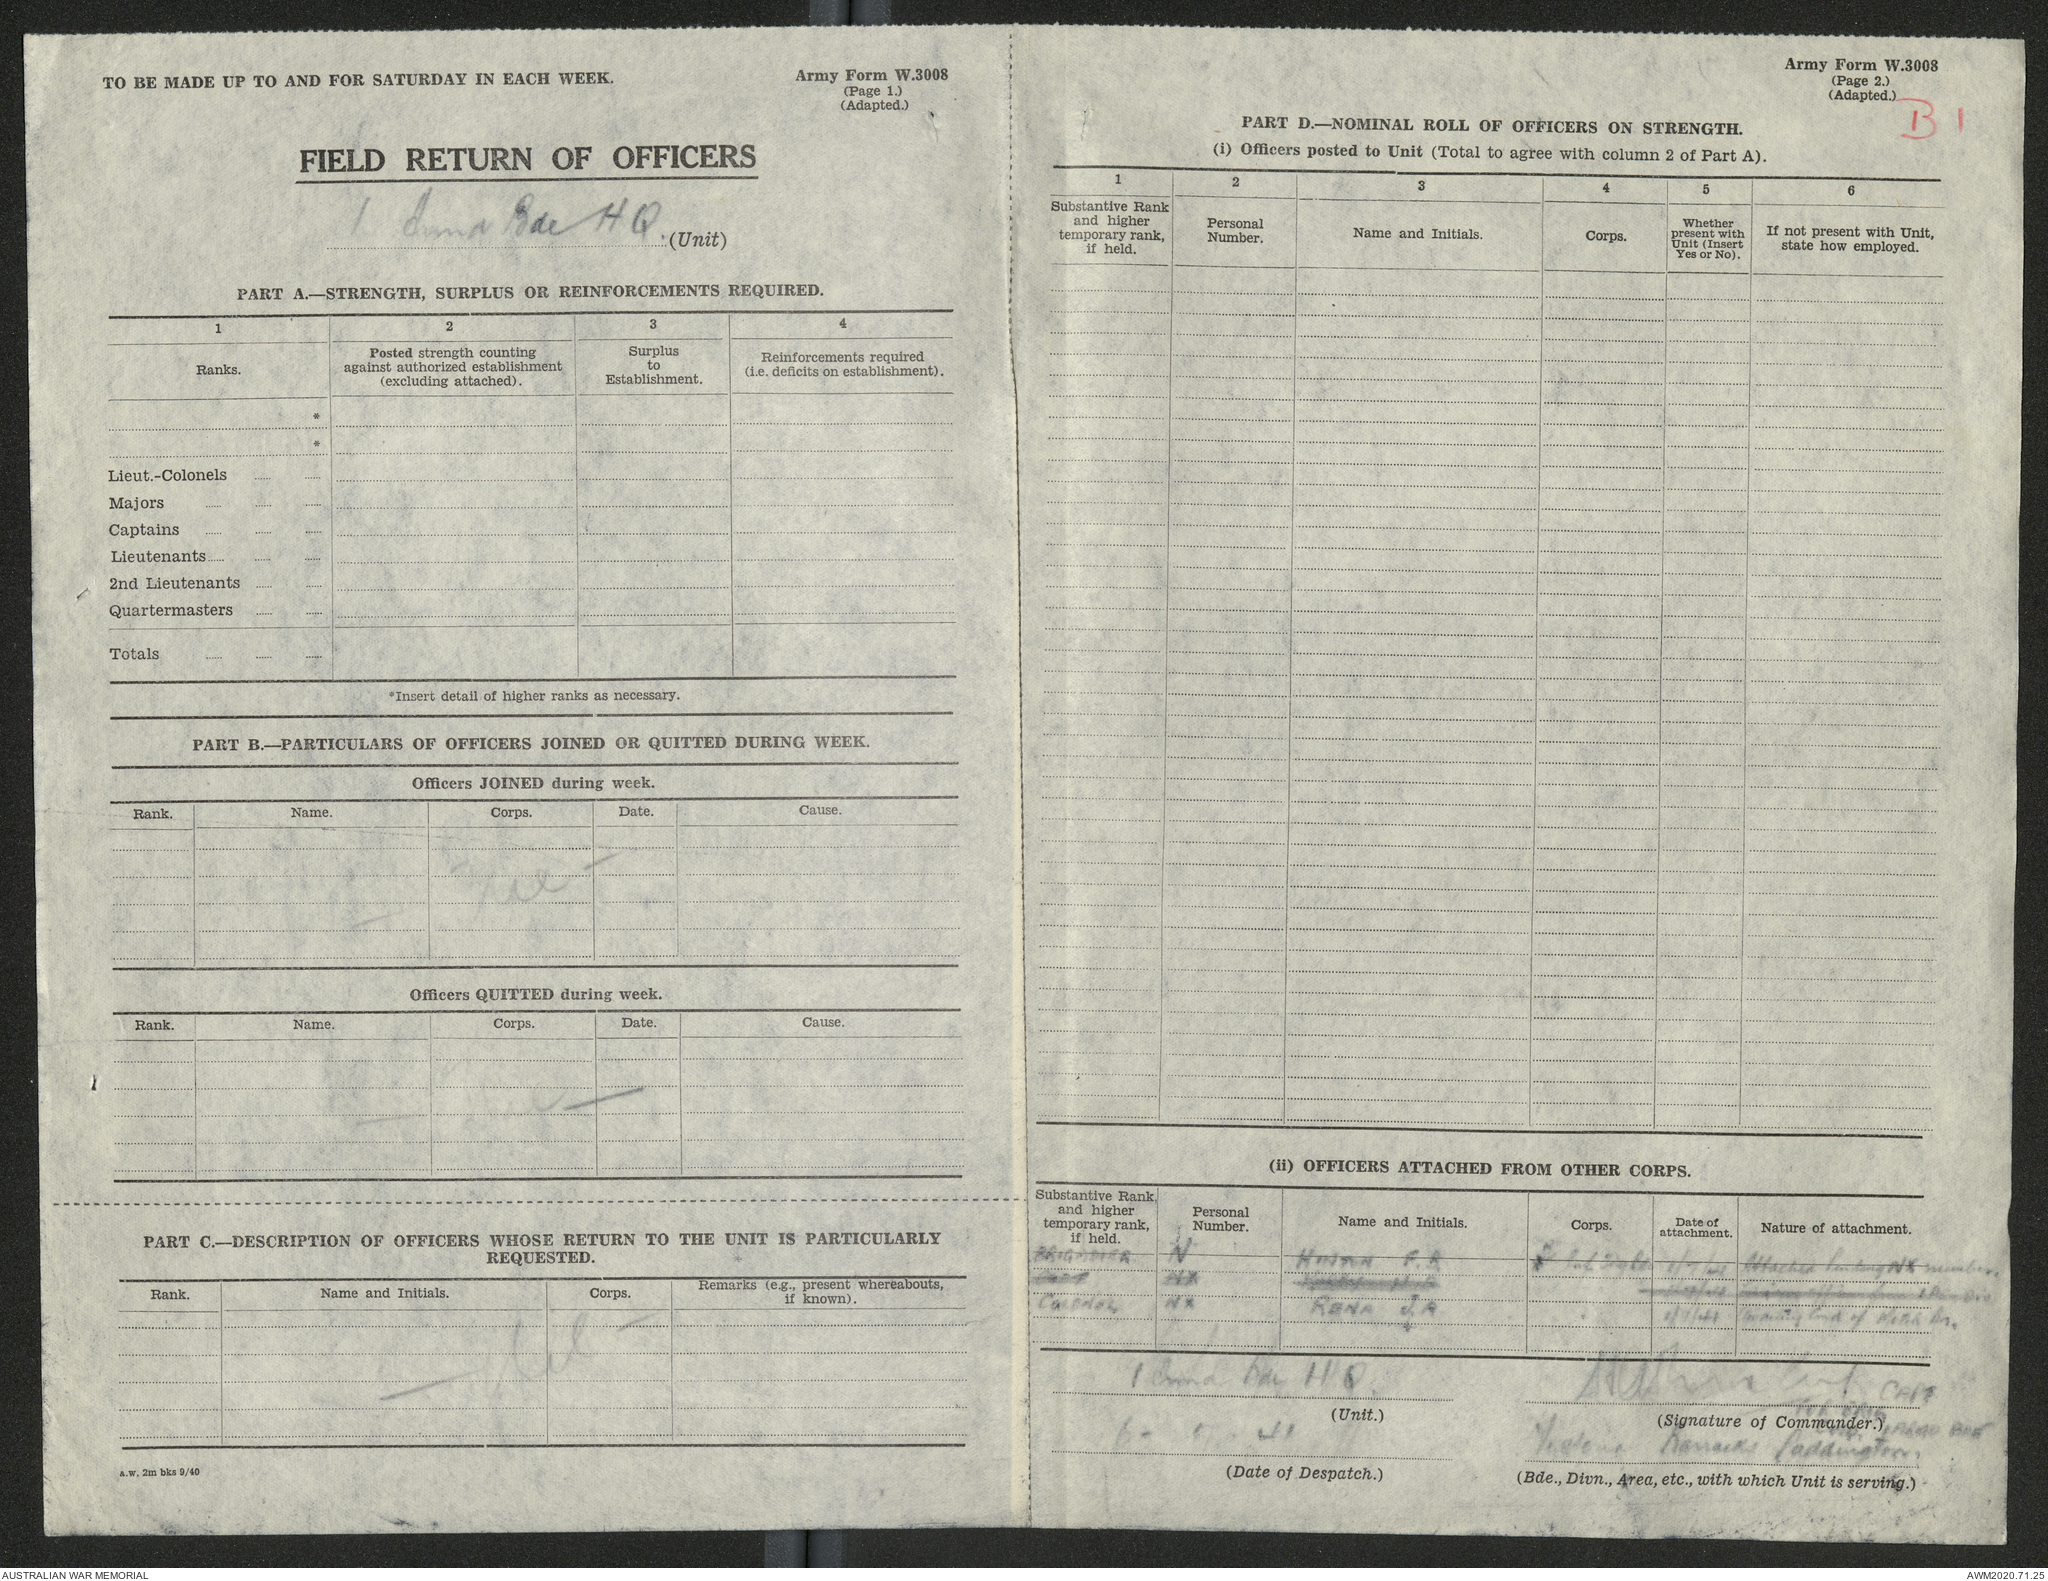 TO BE MADE UP TO AND FOR SATURDAY IN EACH WEEK.
Army Form W.3008
(Page 1.)
(Adapted.)
FIELD RETURN OF OFFICERS
1 Armd Bde HQ. (Unit)
PART A.—STRENGTH, SURPLUS OR REINFORCEMENTS REQUIRED.
1 2 3 4
Ranks.
Posted strength counting against authorized establishment (excluding attached).
Surplus to Establishment.
Reinforcements required (i.e. deficits on establishment).
*
*
Lieut.-Colonels
Majors
Captains
Lieutenants
2nd Lieutenants
Quartermasters
Totals
*Insert detail of higher ranks as necessary.
PART B.—PARTICULARS OF OFFICERS JOINED OR QUITTED DURING WEEK.
Officers JOINED during week.
Rank. Name. Corps. Date. Cause.
Officers QUITTED during week.
Rank. Name. Corps. Date. Cause.
PART C.—DESCRIPTION OF OFFICERS WHOSE RETURN TO THE UNIT IS PARTICULARLY
REQUESTED.
Rank. Name and Initials. Corps. Remarks (e.g., present whereabouts, if known).
a.w. 2m bks 9/40
Army Form W.3008
(Page 2.)
(Adapted.)
B 1
PART D.—NOMINAL ROLL OF OFFICERS ON STRENGTH.
(i) Officers posted to Unit (Total to agree with column 2 of Part A).
1 2 3 4 5 6
Substantive Rank and higher temporary rank, if held.
Personal Number.
Name and Initials.
Corps.
Whether present with Unit (Insert Yes or No).
If not present with Unit, state how employed.
(ii) OFFICERS ATTACHED FROM OTHER CORPS.
Substantive Rank and higher temporary rank, if held.
Personal Number.
Name and Initials.
Corps.
Date of attachment.
Nature of attachment.
BRIGADIER N F. Attached Pending NX number.
NX
COLONEL NX
1 Armd Bde HQ.
CAPT
(Unit.)
(Signature of Commander.)
41
Victoria Barracks Paddington.
(Date of Despatch.)
(Bde., Divn., Area, etc., with which Unit is serving.)
AUSTRALIAN WAR MEMORIAL
AWM2020.71.25